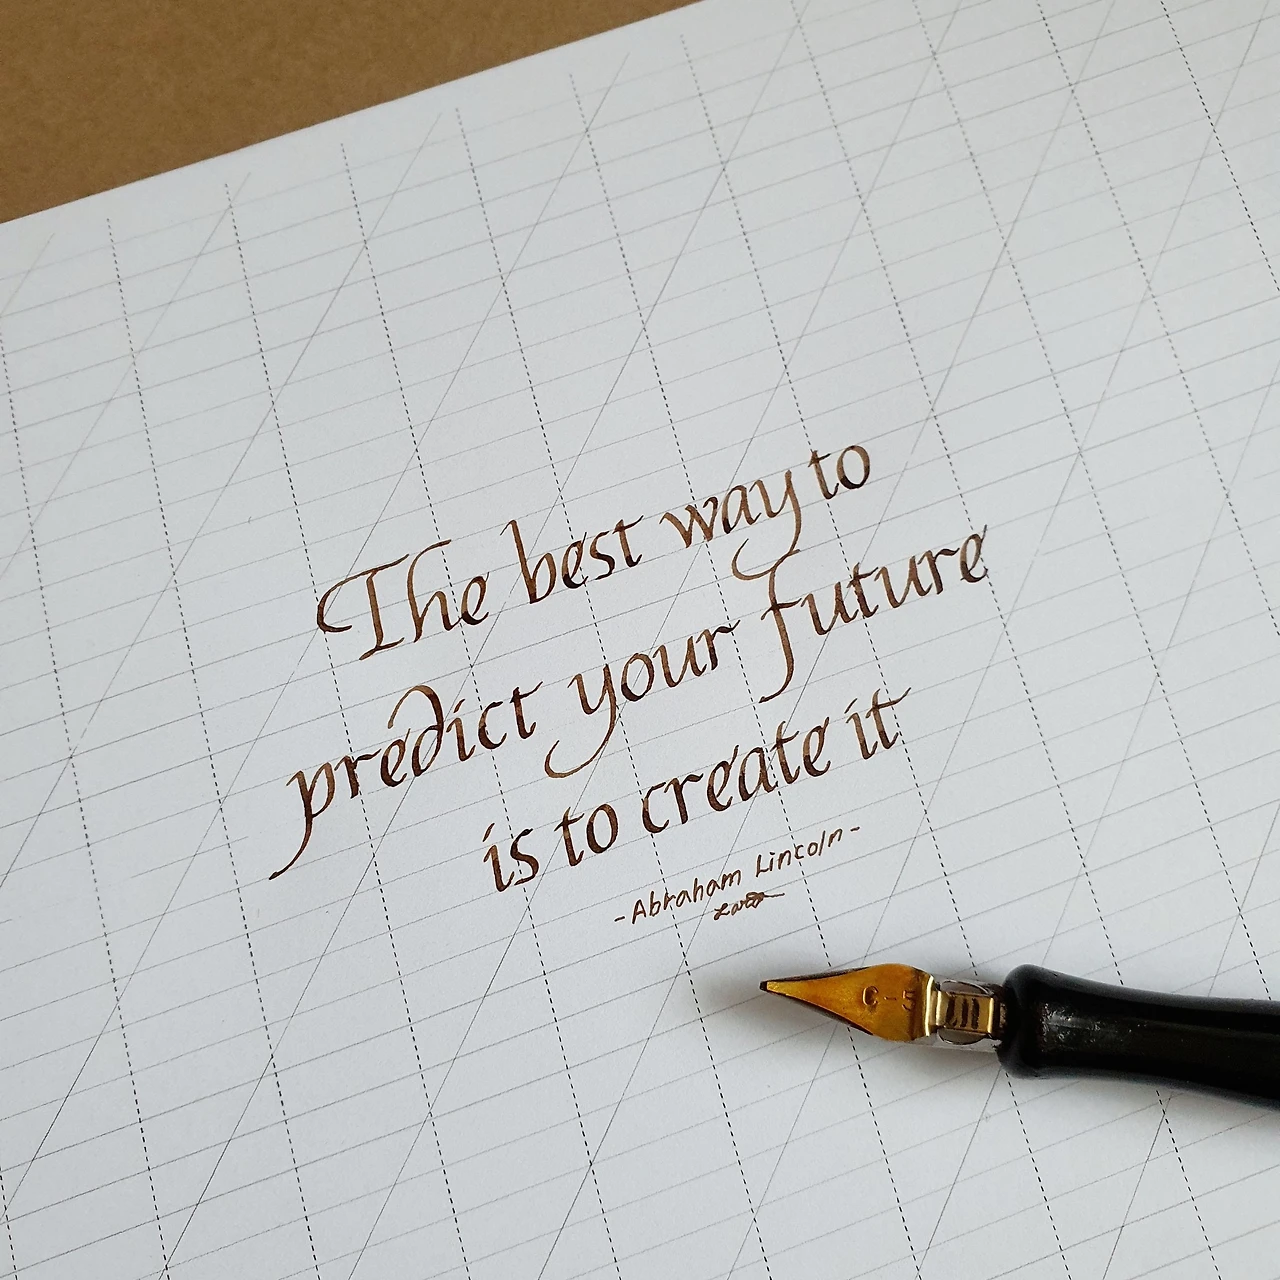 The best way to
predict your future
is to create it
-Abraham Lincoln-
C-5